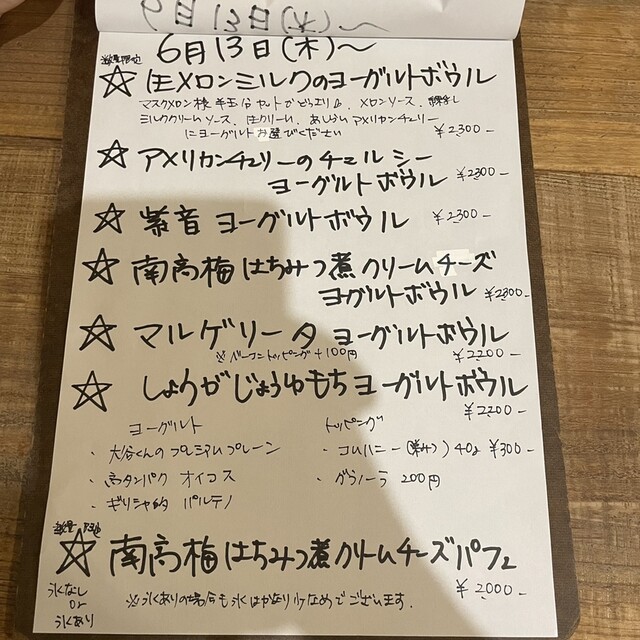 6月13日(木)
6月13日(木)～
☆ 生メロンミルクのヨーグルトボウル
マスクメロン様 半玉分 メロンソース、
ミルククリームソース、生クリーム、あしらい アメリカンチェリー
にヨーグルトお選びください ¥2300-
☆ アメリカンチェリーのチェルシー
ヨーグルトボウル ¥2300-
☆ 紫音 ヨーグルトボウル ¥2300-
☆ 南高梅はちみつ煮クリームチーズ
ヨーグルトボウル ¥2300-
☆ マルゲリータ ヨーグルトボウル
※ベーコントッピング+100円 ¥2200-
☆ しょうがじょうゆもちヨーグルトボウル
¥2200-
ヨーグルト トッピング
・大谷くんのプレミアムプレーン ・コムハニー(巣みつ)40g ¥300-
・高タンパク オイコス ・グラノーラ 200円
・ギリシャ的 パルテノ
☆ 南高梅はちみつ煮クリームチーズパフェ
¥2000-
氷なし
or
氷あり
※氷ありの場合も氷はかなり少なめでございます.